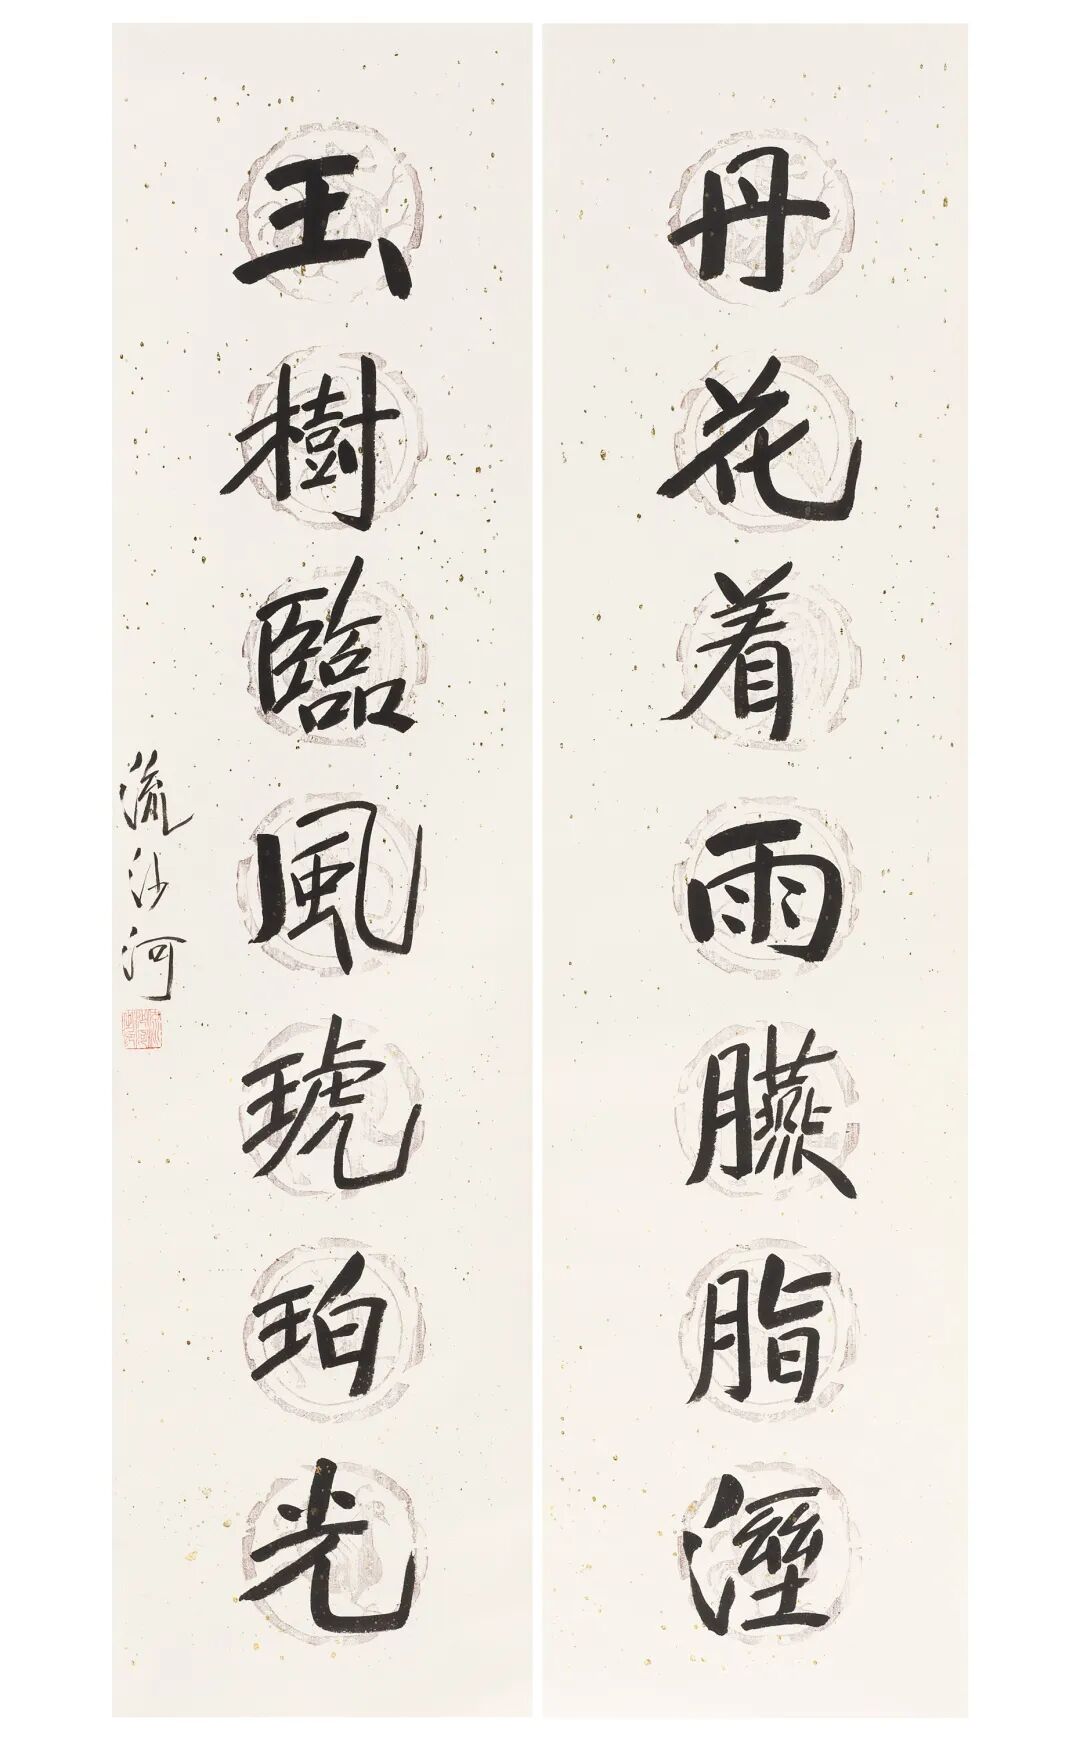 丹花着雨臙脂溼
玉樹臨風琥珀光
流沙河